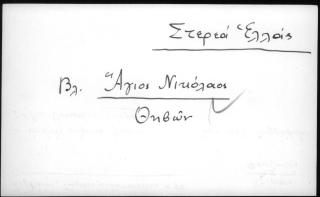 Στερεά Ἑλλάς
Βλ. Ἅγιος Νικόλαος
Θηβῶν